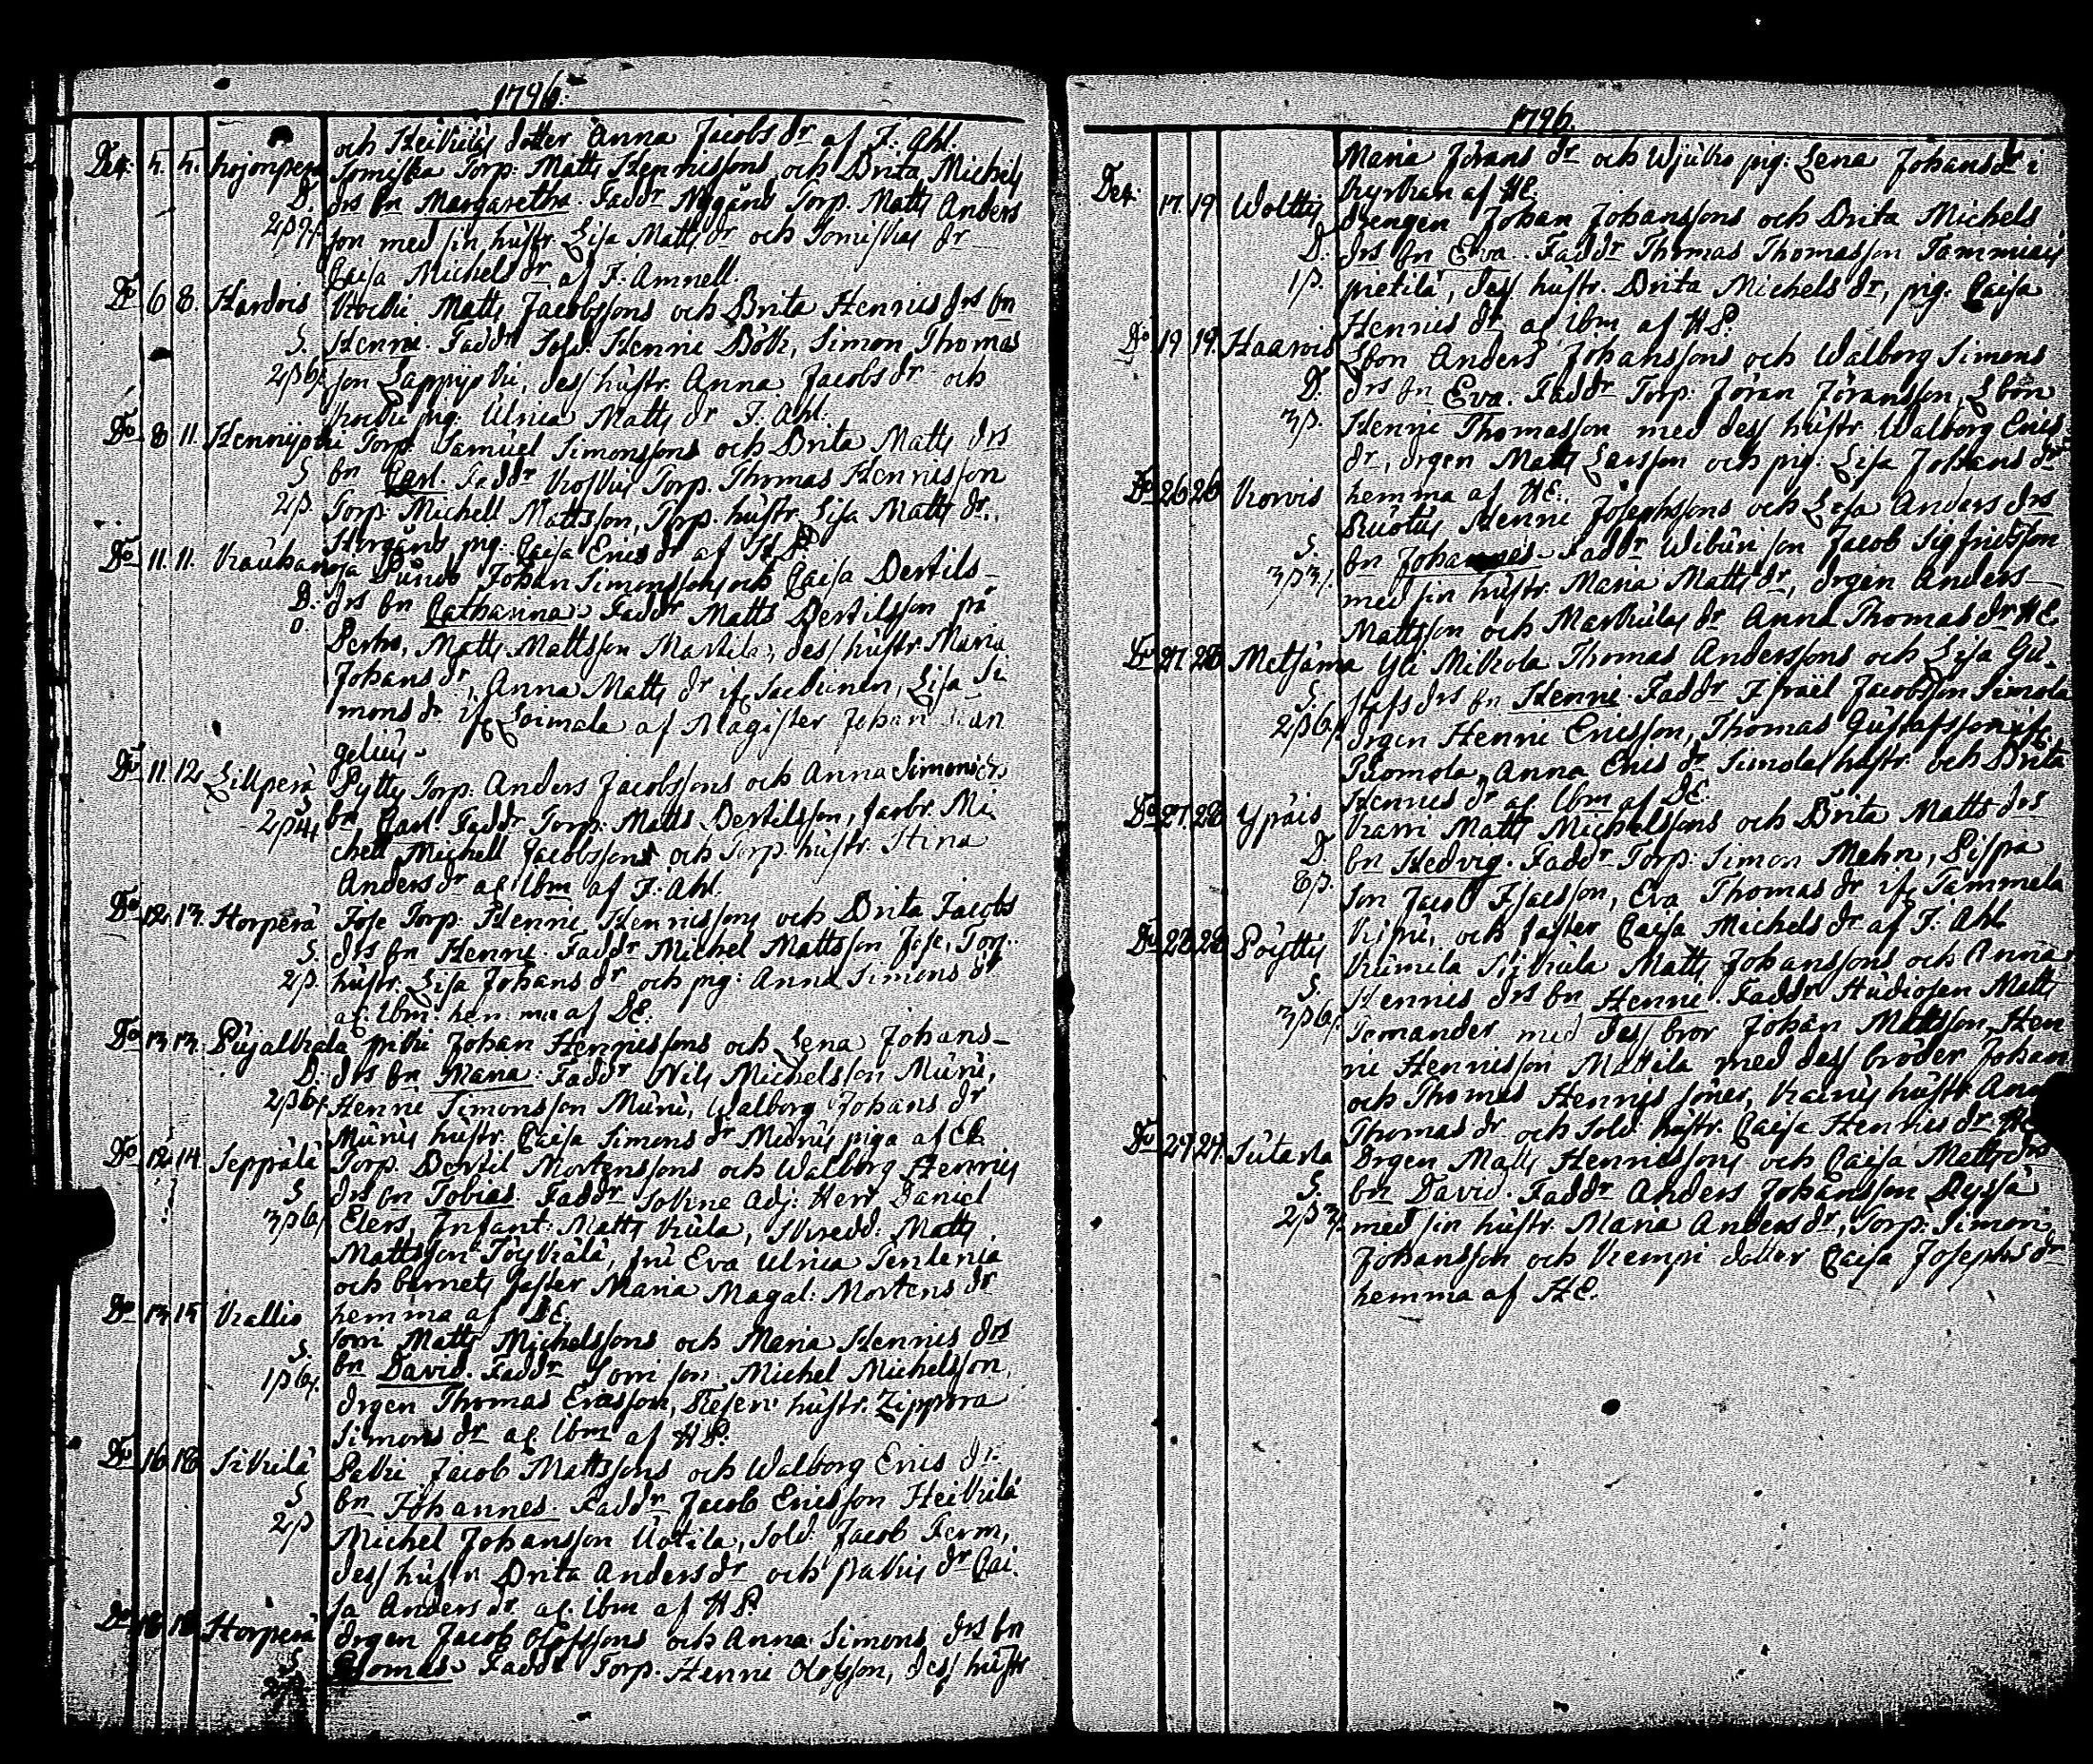 1796.
och Heikilas dotter Anna Jacobs dr af J. Ahl.
Dec. 5. 5. Kojonperä Tomiska Torp: Matts Hennissons och Brita Michels
D. drs bn Margaretha. Faddr Nygård Torp. Matts Anders
2ß 9/. son med sin hustr. Lisa Matts dr och Tomiskas dr
Caisa Michels dr af J. Amnell.
Do 6 8. Hardois Kocki Matts Jacobssons och Brita Hennis drs bn
S. Henni. Faddr Sold. Henni Bök, Simon Thomas
2ß 6/. son Lappijoki, dess hustr. Anna Jacobs dr och
Kocki pig. Ulrica Matts dr J. Ahl.
Do 8 11. Hennijoki Torp. Samuel Simonssons och Brita Matts drs
S bn Carl. Faddr Koskis Torp. Thomas Hennisson
2ß. Torp. Michell Mattsson, Torp. hustr. Lisa Matts dr.
Horgänd pig. Caisa Erics dr af H P
Do 11. 11. Raukanoja Johan Simonssons och Caisa Bertils
D. drs bn Catharina. Faddr Matts Bertilsson på
0. Matts Mattsson Martila, dess hustr. Maria
Johans dr, Anna Matts dr ifr Saukonen, Lisa Si
mons dr ifr Loimala af Magister Johan Wan
gelius
Do 11. 12. Lillperä Pytty Torp: Anders Jacobssons och Anna Simons drs
S. bn Carl. Faddr Torp. Matts Bertilsson, farbr. Mi
2ß 4/. chell Michell Jacobsson och Torp. hustr. Stina
Anders dr af. ibm af J. Ahl.
Do 12. 13. Horperä Jose Torp. Henni Hennissons och Brita Jacobs
S. drs bn Henni. Faddr Michel Mattsson Jose, Torp.
2ß. hustr. Lisa Johans dr och pig: Anna Simons dr
af. ibm. hemma af DE.
Do 13 13. Pujalkala Johan Hennissons och Lena Johans
D. drs bn Maria. Faddr Nils Michelsson Munu,
2ß 6/. Henni Simonsson Munu, Walborg Johans dr
Munus hustr. Caisa Simons dr Munus piga af
Do 12 14. Seppälä Torp. Bertil Mortenssons och Walborg Hennis
S drs bn Tobias. Faddr Sokne Adj: Herr Daniel
3ß 6/. Elers, Infant: Matts Kula, Skredd: Matts
Mattsson Töyskälä, fru Eva Ulrica Tenlenia
och barnets faster Maria Magdal: Mortens dr
hemma af DE.
Do 13 15 Kallio Torri Matts Michelssons och Maria Hennis drs
S. bn David. Faddr Torri son Michel Michelsson,
1ß 6/. drgen Thomas Ericsson, hustr. Zippora
Simons dr af. ibm af H P.
Do 16 18 Sikilä Pakki Jacob Mattssons och Walborg Erics dr.
S bn Johannes. Faddr Jacob Ericsson Heikilä
2ß Michel Johansson Uotila, Sold: Jacob Ferm,
dess hustr Brita Anders dr och Pakkis dr Cai
sa Anders dr. af. ibm af H P.
Do 16 18 Horperä drgen Jacob Olofssons och Anna Simons drs bn
S Thomas. Faddr Torp. Henni Olofsson, dess hustr
1796.
Maria Jörans dr och Wjuko pig: Lena Johans dr i
Kyrkan af HE.
Dec. 17. 19 Wolttis drengen Johan Johanssons och Brita Michels
D. drs bn Eva. Faddr Thomas Thomasson Tammiais
1ß. prekilä, dess hustr. Brita Michels dr, pig. Caisa
Hennis dr af ibm af H P.
Do 19 19. Haarois Lbon Anders Johanssons och Walborg Simons
D. drs bn Eva. Faddr Torp: Jöran Jöransson, Lbon
3ß. Henni Thomasson med dess hustr. Walborg Erics
dr, drgen Matts Larsson och pig: Lisa Johans dr
hemma af HE.
Do 26 26 Korvis Ruotus Henni Josephssons och Lisa Anders drs
S. bn Johannes. Faddr Wiburi son Jacob Sigfridsson
3ß 3/. med sin hustr. Maria Matts dr, drgen Anders
Mattsson och Markulas dr Anna Thomas dr HE.
Do 27. 28 Metsämaa Yli Mikola Thomas Anderssons och Lisa Gu
S. stafs drs bn Henni. Faddr Israel Jacobsson Simola
2ß 6/. drgen Henni Ericsson, Thomas Gustafsson ifr
Tuomola, Anna Erics dr Simolas hustr. och Brita
Hennis dr af ibm af DE.
Do 27. 28 Ypäis Karri Matts Michelssons och Brita Matts drs
D. bn Hedvig. Faddr Torp: Simon Mehn, Pispa
8ß. son Jacob Isacsson, Eva Thomas dr ifr Tammela
Kipu, och faster Caisa Michels dr af J. Ahl
Do 28 28 Pöytty Kumila Sijkula Matts Johanssons och Anna
S. Hennis drs bn Henni. Faddr Studiosen Matt
3ß 6/. Temander med dess bror Johan Mattsson, Hen
ni Hennisson Mattila med dess bröder Johan
och Thomas Hennis söner, Krainis hustr Ann
Thomas dr och Sold: hustr. Caisa Hennis dr
Do 29. 29. Sutarla Drgen Matts Hennissons och Caisa Matts drs
S. bn David. Faddr Anders Johansson Ryssä
2ß 3/. med sin hustr. Maria Anders dr, Torp: Simon
Johansson och Kempi dotter Caisa Josephs dr
hemma af HE.